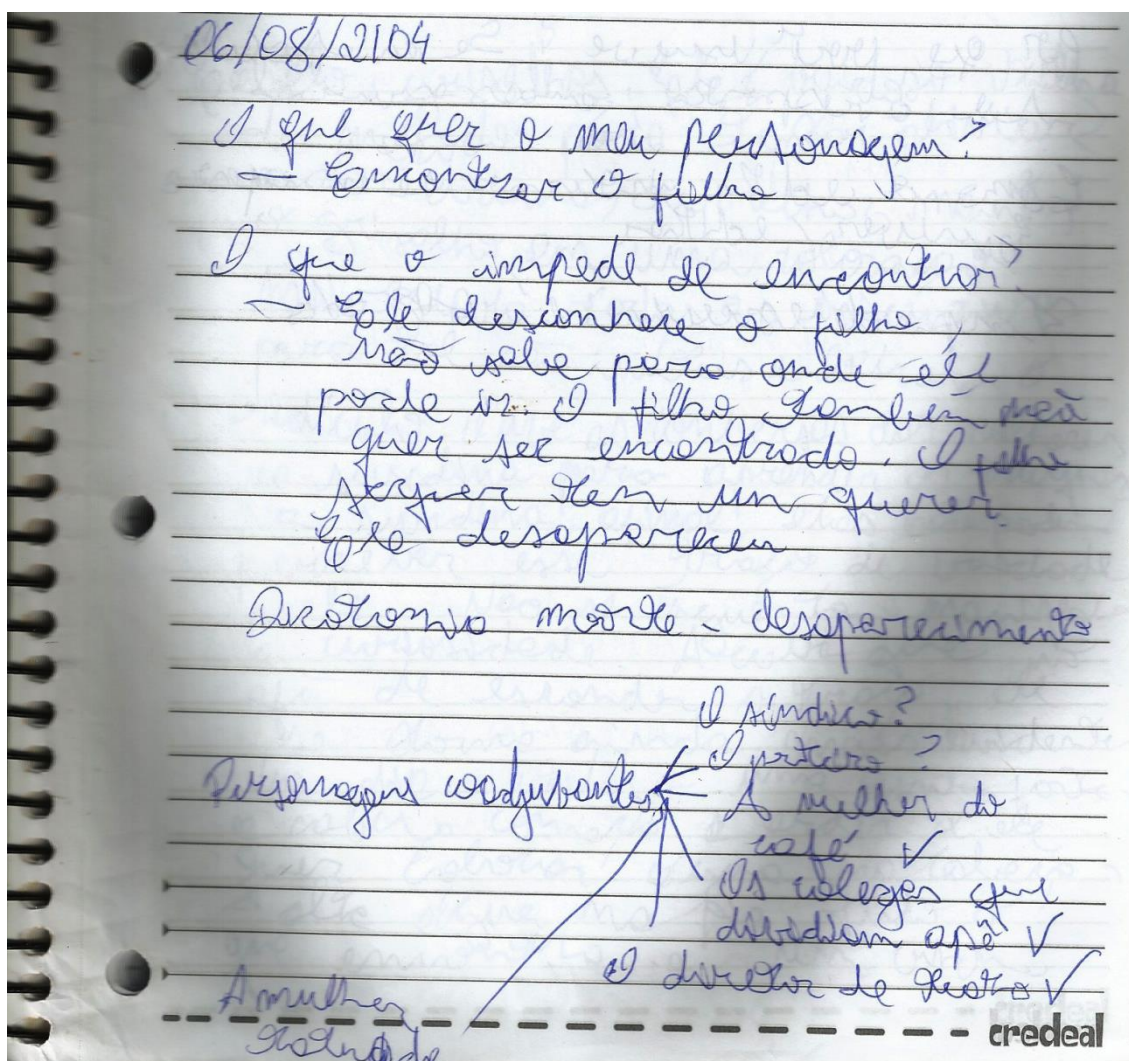 06/08/2104
O que quer o meu personagem?
— Encontrar o filho
O que o impede de encontrar?
— Ele desconhece o filho,
não sabe para onde ele
pode ir. O filho também não
quer ser encontrado. O filho
sequer tem um querer.
Ele desapareceu
morte - desaparecimento
O síndico?
O porteiro?
Personagens coadjuvantes
A mulher do
café ✓
Os colegas que
dividiam apê ✓
O diretor de teatro ✓
A mulher
credeal